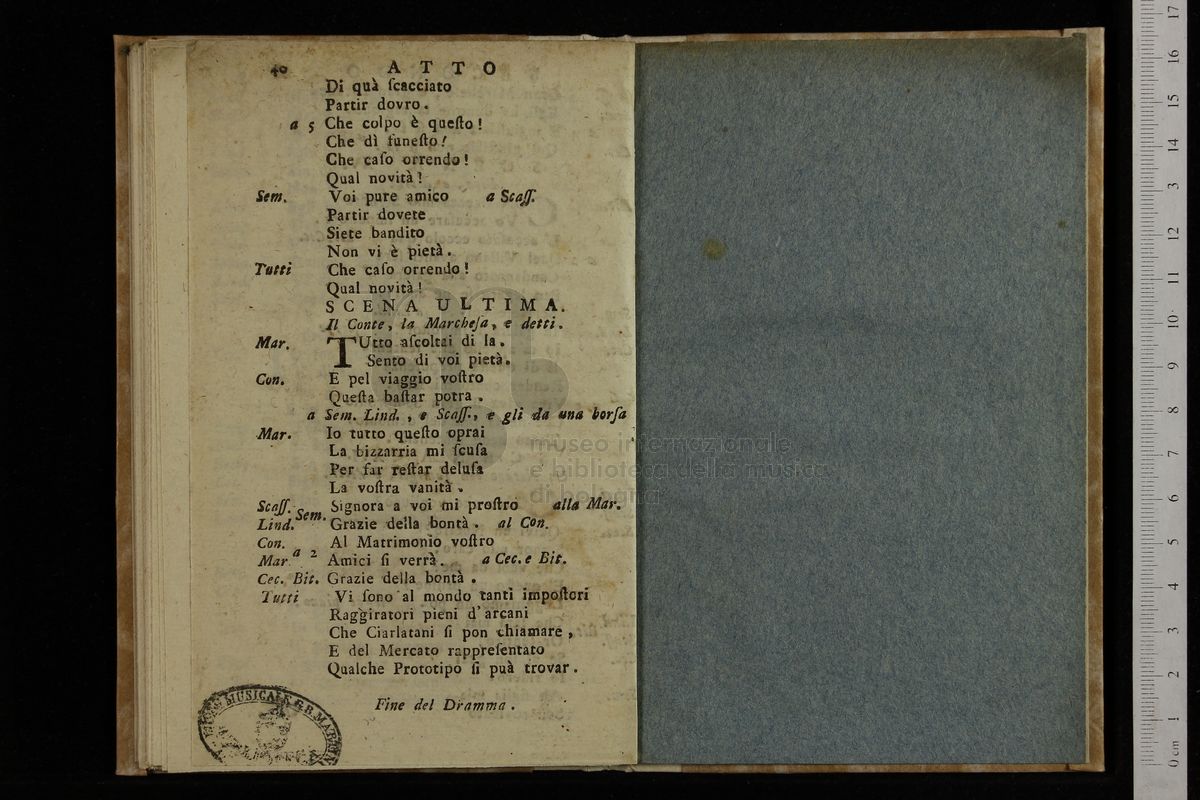 40 ATTO
Di quà ſcacciato
Partir dovro.
a 5 Che colpo è queſto!
Che dì funeſto!
Che caſo orrendo!
Qual novità!
Sem. Voi pure amico a Scaff.
Partir dovete
Siete bandito
Non vi è pietà.
Tutti Che caſo orrendo!
Qual novità!
SCENA ULTIMA.
Il Conte, la Marcheſa, e detti.
Mar. TUtto aſcoltai di la.
Sento di voi pietà.
Con. E pel viaggio voſtro
Queſta baſtar potra.
a Sem. Lind., e Scaff., e gli da una borſa
Mar. Io tutto queſto oprai
La bizzarria mi ſcuſa
Per far reſtar deluſa
La voſtra vanità.
Scaff. Signora a voi mi proſtro alla Mar.
Sem.
Lind. Grazie della bontà. al Con.
Con. Al Matrimonio voſtro
a 2
Mar. Amici ſi verrà. a Cec. e Bit.
Cec. Bit. Grazie della bontà.
Tutti Vi ſono al mondo tanti impoſtori
Raggiratori pieni d'arcani
Che Ciarlatani ſi pon chiamare,
E del Mercato rappreſentato
Qualche Prototipo ſi puà trovar.
Fine del Dramma.
MUSICALE
museo internazionale
e biblioteca della musica
di bologna
17
16
15
14
13
12
11
10
9
8
7
6
5
4
3
2
1
0 cm